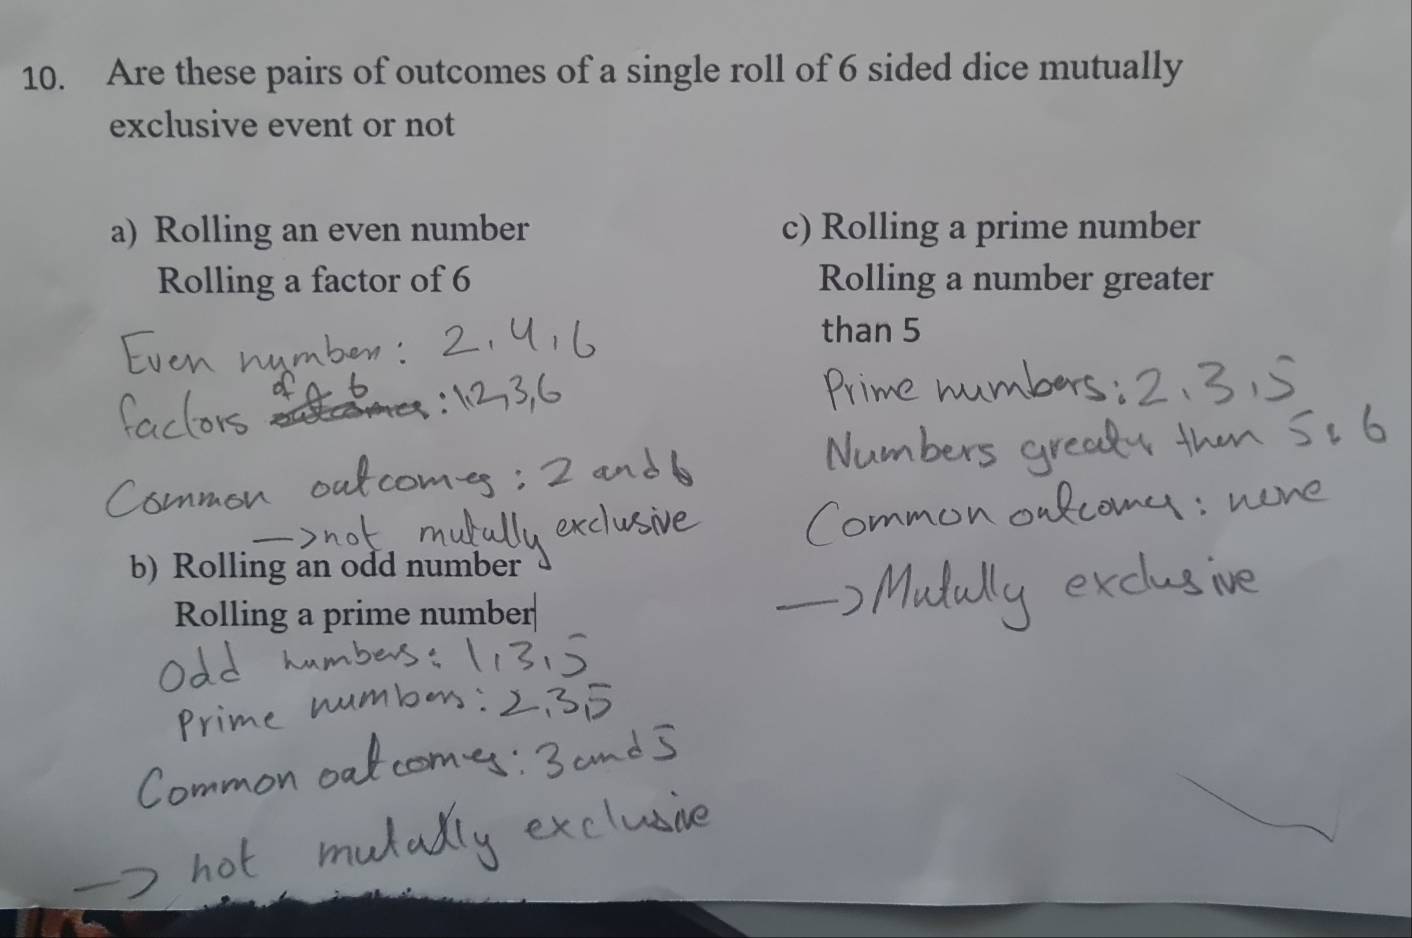 10. Are these pairs of outcomes of a single roll of 6 sided dice mutually
exclusive event or not
a) Rolling an even number
Rolling a factor of 6
Even number: 2, 4, 6
factors of 6 : 1,2,3,6
Common outcomes : 2 and 6
→ not mutually exclusive
b) Rolling an odd number
Rolling a prime number
Odd numbers: 1, 3, 5
Prime numbers: 2,3,5
Common outcomes: 3 and 5
→ not mutually exclusive
c) Rolling a prime number
Rolling a number greater
than 5
Prime numbers: 2, 3, 5
Numbers greater then 5: 6
Common outcomes: none
→ Mutually exclusive